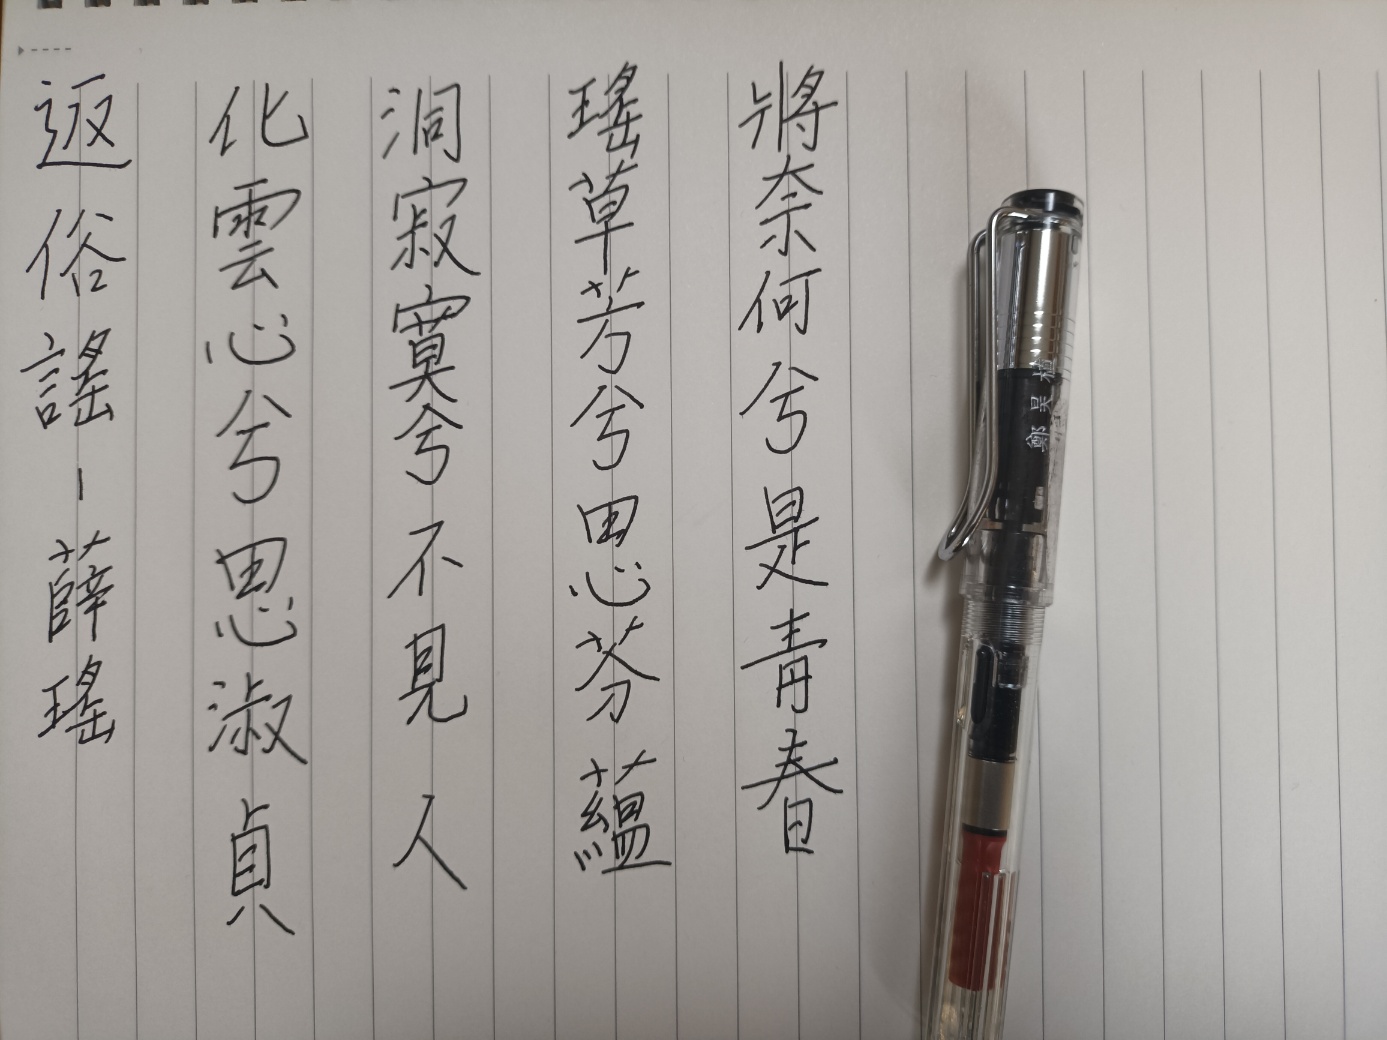 返俗謠-薛瑤
化雲心兮思淑貞
洞寂寞兮不見人
瑤草芳兮思芬蘊
將奈何兮是青春
鄭昊植